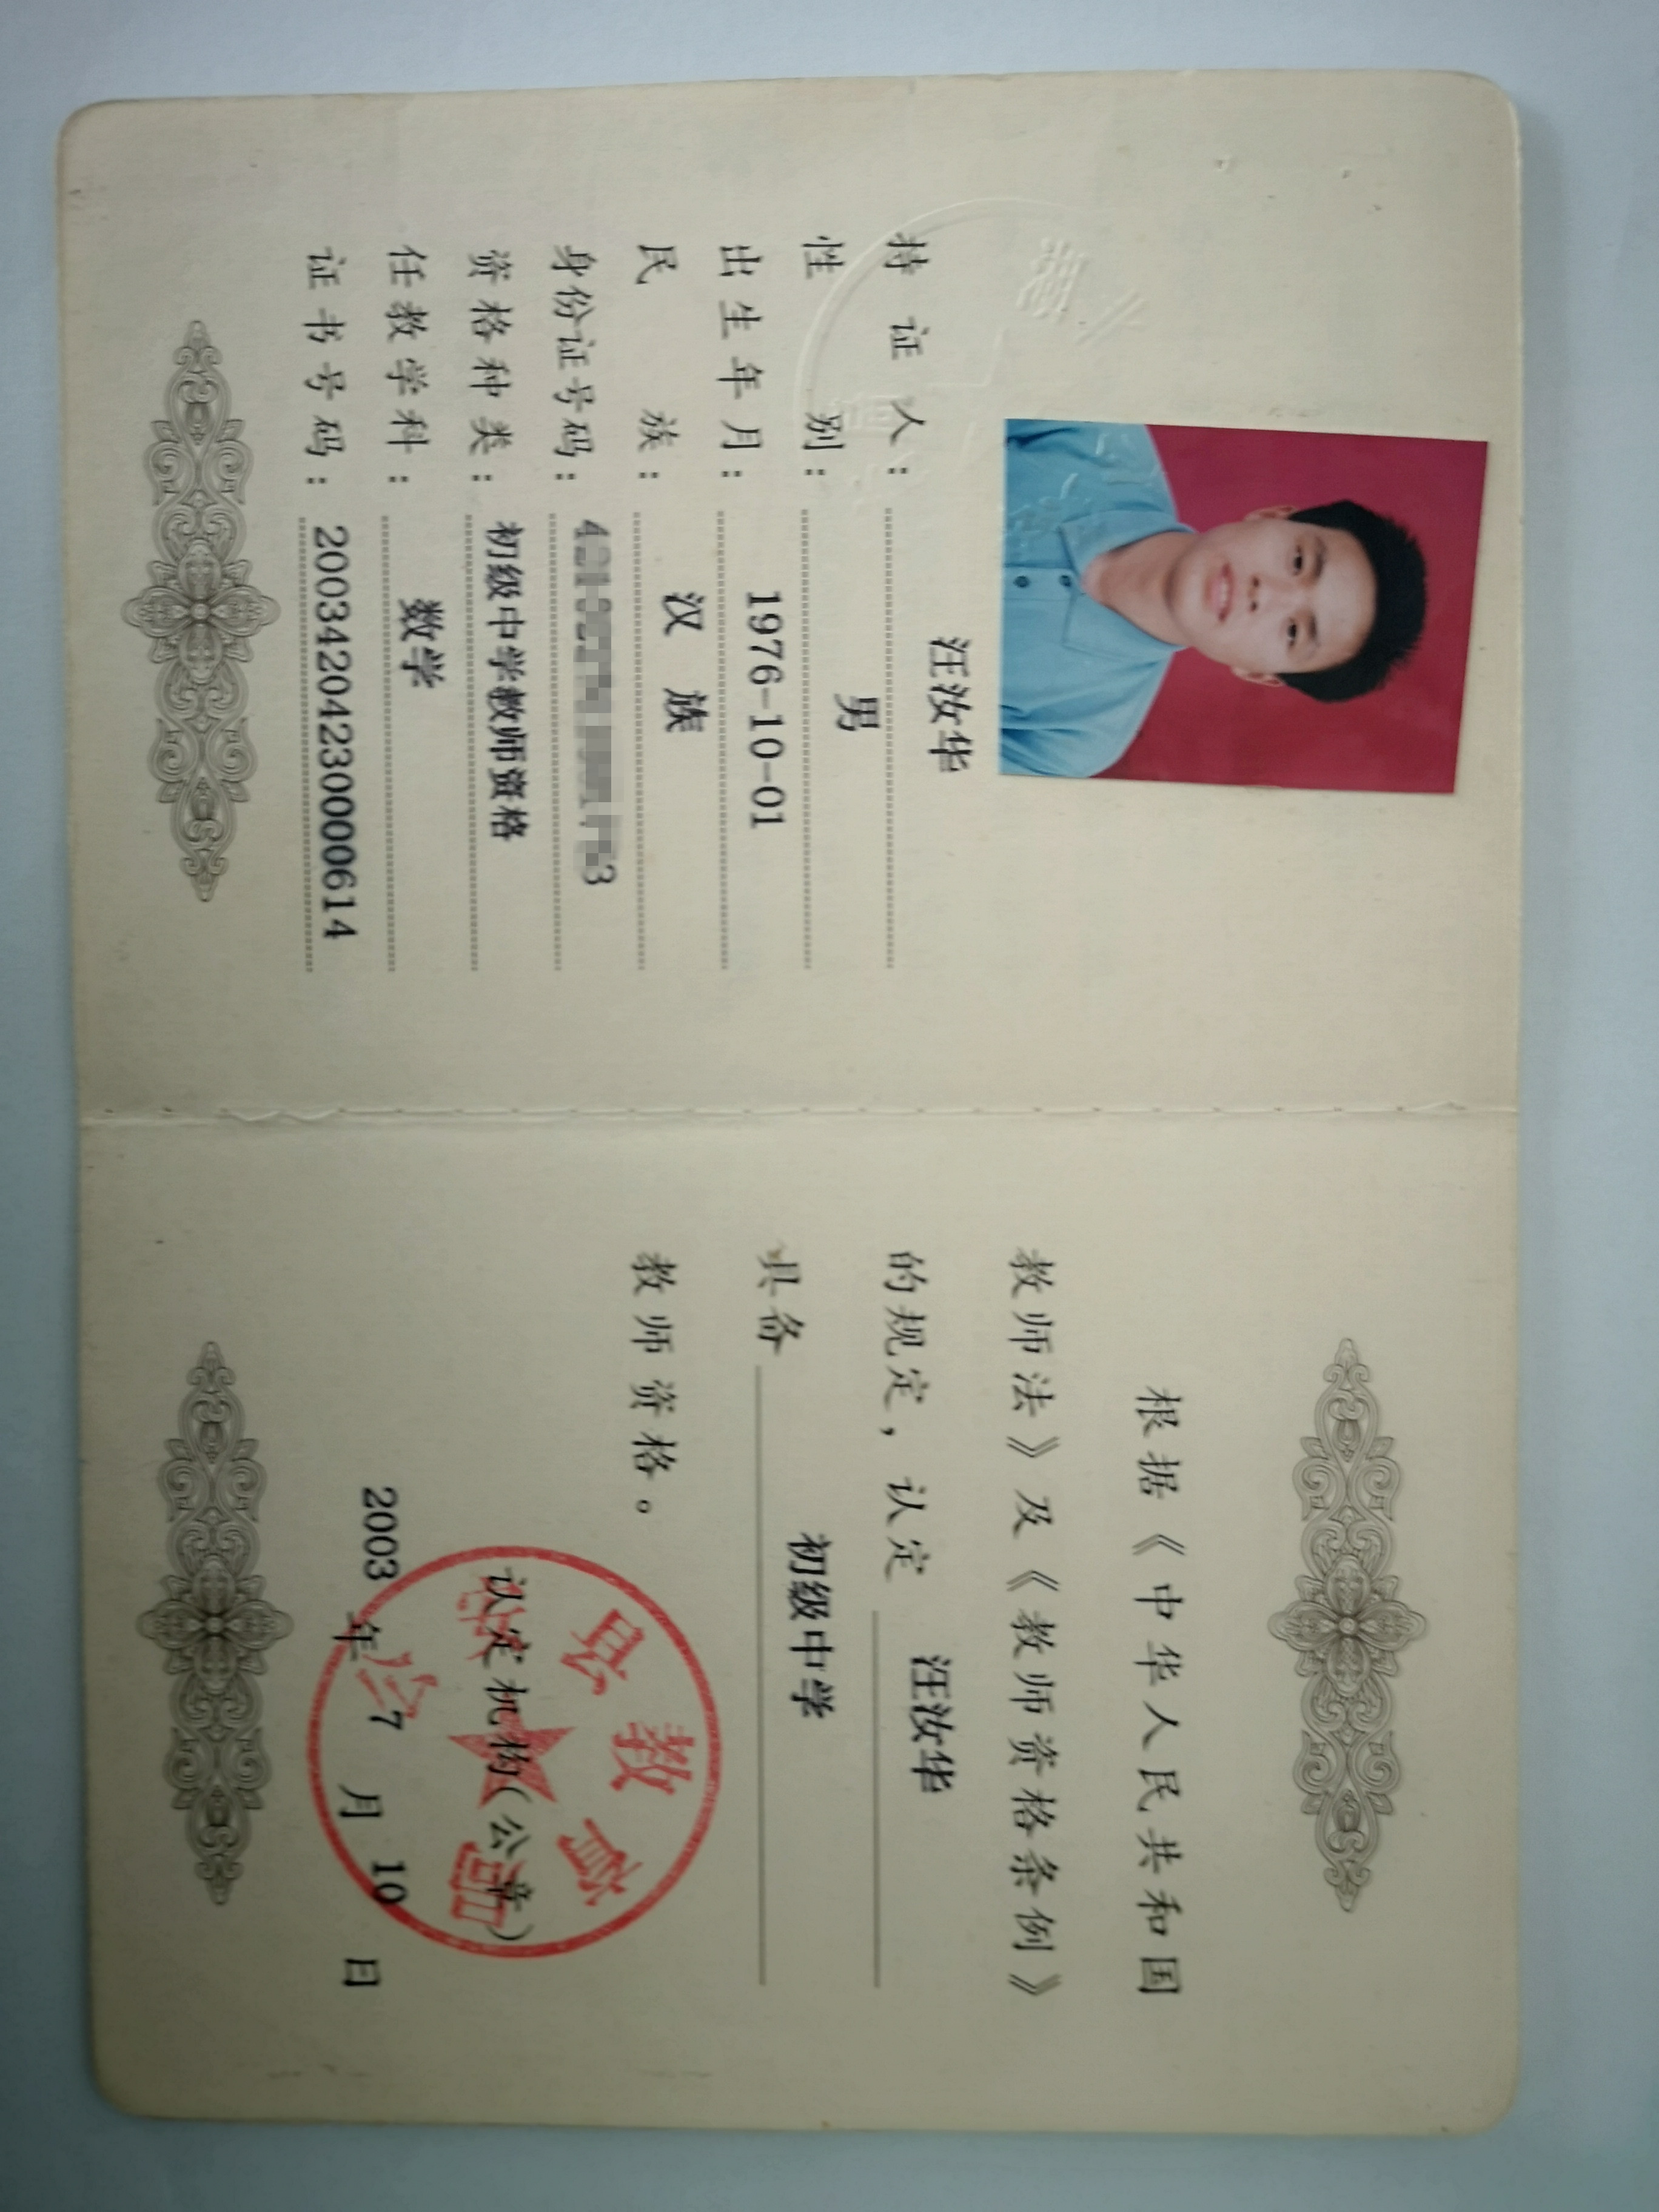 持证人： 汪汝华
性别： 男
出生年月： 1976-10-01
民族： 汉族
身份证号码：
资格种类： 初级中学教师资格
任教学科： 数学
证书号码： 20034204230000614
根据《中华人民共和国
教师法》及《教师资格条例》
的规定，认定 汪汝华
具备 初级中学
教师资格。
认定机构（公章）
县教育局
2003 年 7 月 10 日